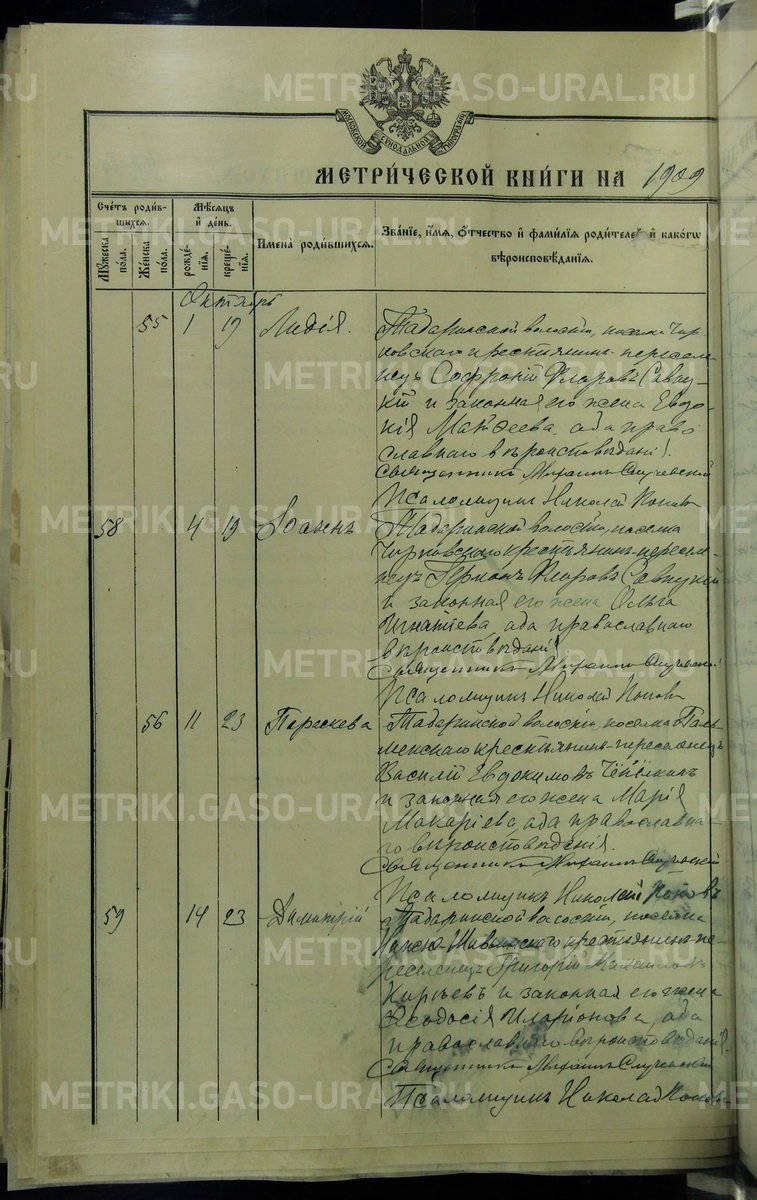 METRIKI.GASO-URAL.RU
МОСКОВСКОЙ СѴНОДАЛЬНОЙ ТИПОГРАФІИ
МЕТРИ́ЧЕСКОЙ КНИ́ГИ НА 1909
Счетъ роди́вшихся.
Мꙋжеска по́ла.
Же́нска по́ла.
Мѣ́сяцъ и҆ де́нь.
рожде́нїя.
креще́нїя.
Имена̀ роди́вшихся.
Зва́нїе, и҆́мя, ѻ҆́тчество и҆ фами́лїя роди́телей и҆ како́гѡ вѣроисповѣ́данїя.
Октябрь
55 1 19 Лидія.
Табаринской волости, поселка Чир
ковскаго крестьянинъ-переселе
нецъ Софроній Флоровъ Савиц
кій и законная его жена Евдо
кія Матѳеева, оба право
славнаго вѣроисповѣданія.
Священникъ Михаилъ Случевскій
Псаломщикъ Николай Поповъ
58 4 19 Іоаннъ
Табаринской волости, поселка
Чирковскаго крестьянинъ-пересе
нецъ Германъ Флоровъ Савицкій
и законная его жена Ольга
Игнатіева, оба православнаго
вѣроисповѣданія
Священникъ Михаилъ
Псаломщикъ Николай Поповъ
56 11 23 Параскева
Табаринской волости, поселка
менскаго крестьянинъ-переселенецъ
Василій Евдокимовъ
и законная его жена Марія
Макаріева, оба православна
го вѣроисповѣданія.
Священникъ Михаилъ Случевскій
Псаломщикъ Николай Поповъ
59 14 23 Димитрій
Табаринской волости, поселка
крестьянинъ пе
реселенецъ Григорій
Кирѣевъ и законная его жена
Ѳеодосія Иларіонова, оба
православнаго вѣроисповѣданія.
Священникъ Михаилъ Случевскій
Псаломщикъ Николай Поповъ